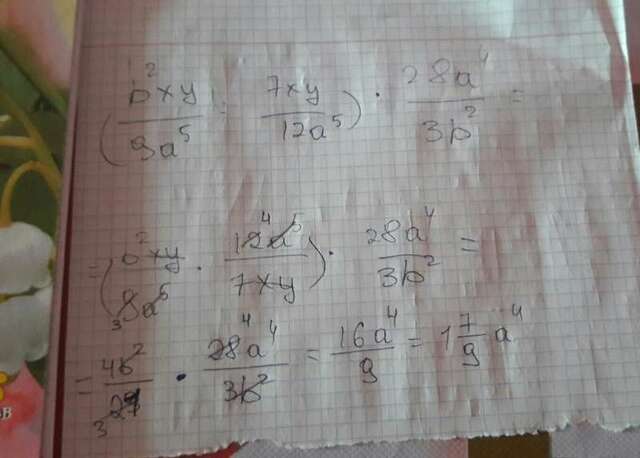 (b²xy/9a⁵ : 7xy/12a⁵) · 28a⁴/3b² =
= (b²xy/9a⁵ · 12a⁵/7xy) · 28a⁴/3b² =
= 4b²/21 · 28a⁴/3b² = 16a⁴/9 = 1 7/9 a⁴